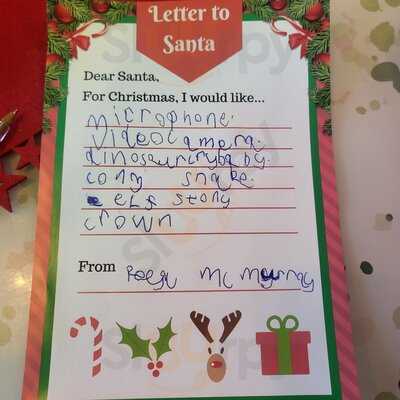 Letter to
Santa
Dear Santa,
For Christmas, I would like...
microphone.
videocamera.
dinosaurcrybaby.
snake.
elf story
crown
From mc murray